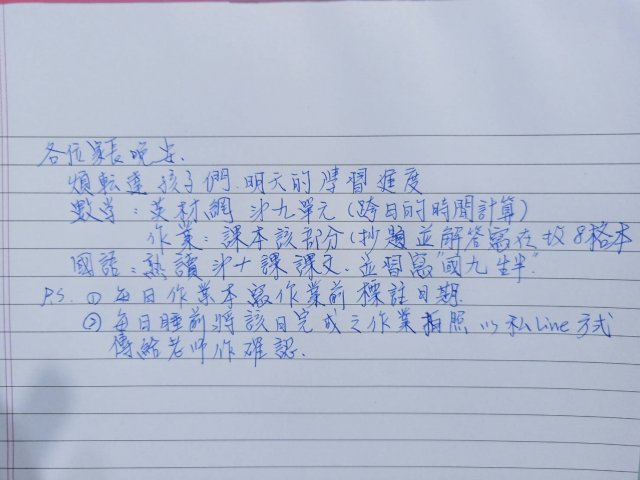 各位家長晚安.
煩転達孩子們.明天的學習進度
數學:英材網 第九單元(跨日的時間計算)
作業:課本該部分(抄題並解答寫在 格本
國語:熟讀第十課課文.並習寫"國九生半".
P.S. ① 每日作業本寫作業前標註日期.
② 每日睡前將該日完成之作業拍照以私Line方式
傳給老師作確認.